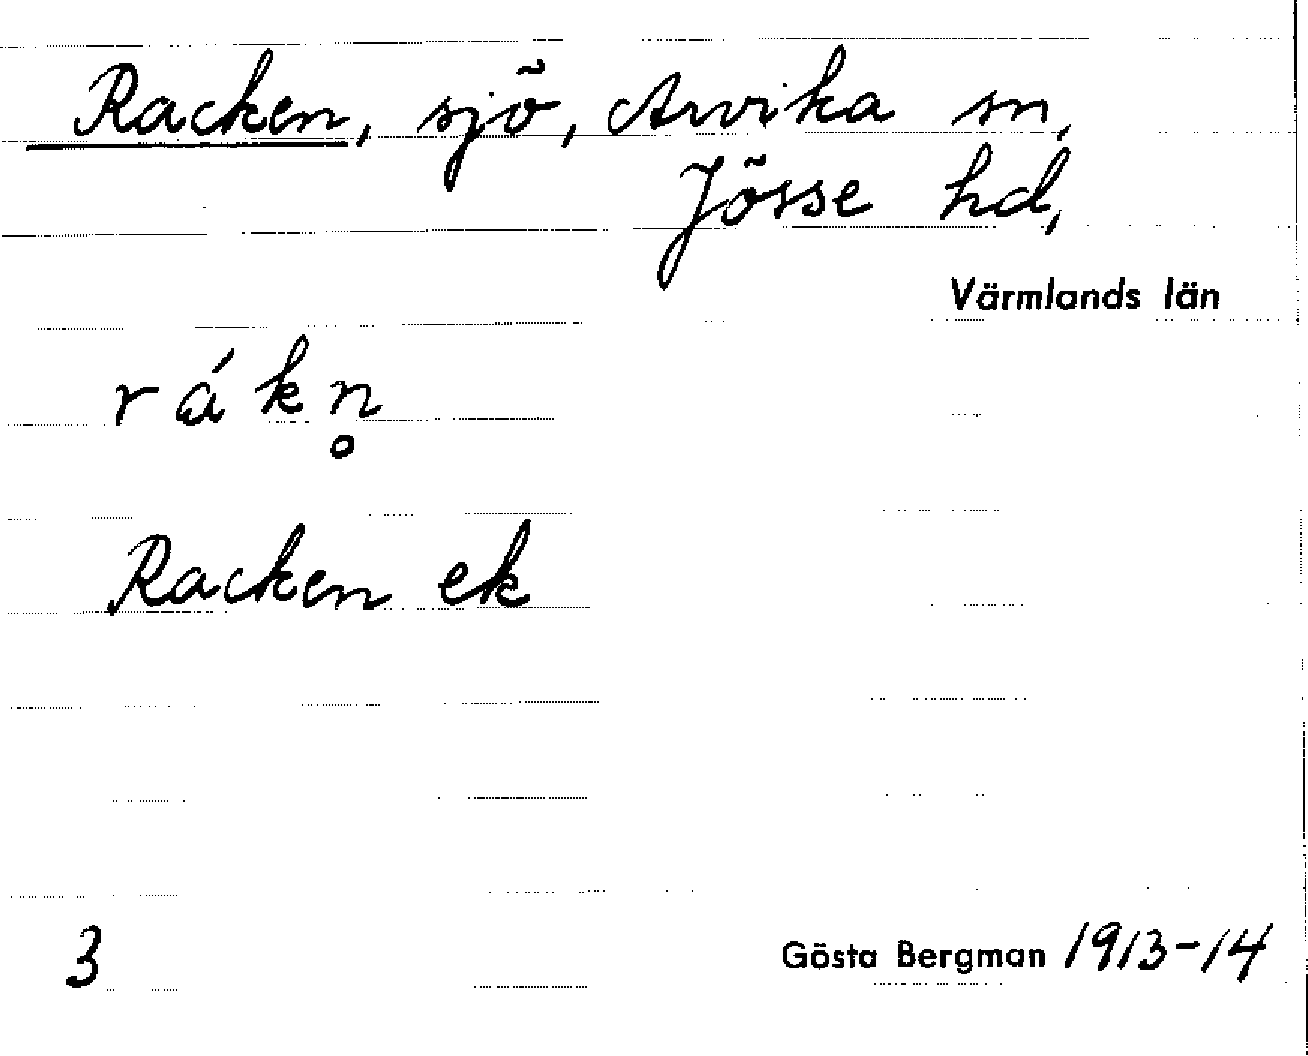 Racken, sjö, Arvika sn,
Jösse hd,
Värmlands län
r á k n̥
Racken ek
3
Gösta Bergman 1913-14